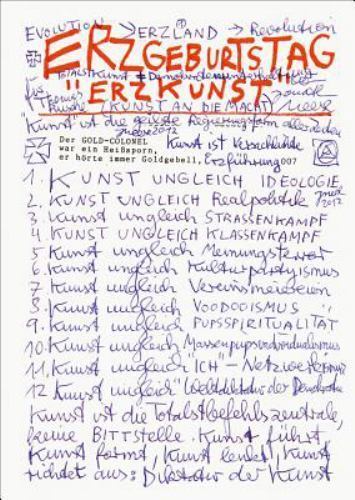 EVOLUTION → ERZLAND → Revolution
ERZGEBURTSTAG
TOTALSTKUNST ≠ Demokratenunterhaltung
"ERZKUNST"
für Thomas
(KUNST AN DIE MACHT)
"Kunst" ist die geilste Regierungsform aller Zeiten
Meese 2012
Der GOLD-COLONEL
war ein Heißsporn,
er hörte immer Goldgebell,
Kunst ist Verschlußsache
Erzführung 007
1. KUNST UNGLEICH IDEOLOGIE
2. KUNST UNGLEICH Realpolitik
2012
3. Kunst ungleich STRASSENKAMPF
4. KUNST UNGLEICH KLASSENKAMPF
5 Kunst ungleich Meinungsterror
6. Kunst ungleich Kulturpartyismus
7. Kunst ungleich Vereinsmeiereien
8. Kunst ungleich VOODOOISMUS
9. Kunst ungleich PUPSSPIRITUALITÄT
10. Kunst ungleich Massenpupsindividualismus
11. Kunst ungleich "ICH" - Netzwerkerei
12 Kunst ungleich Weltdiktatur der Demokratie
Kunst ist die Totalstbefehlszentrale,
keine BITTSTELLE. Kunst führt,
Kunst formt, Kunst lenkt, Kunst
richtet aus: Diktatur der Kunst